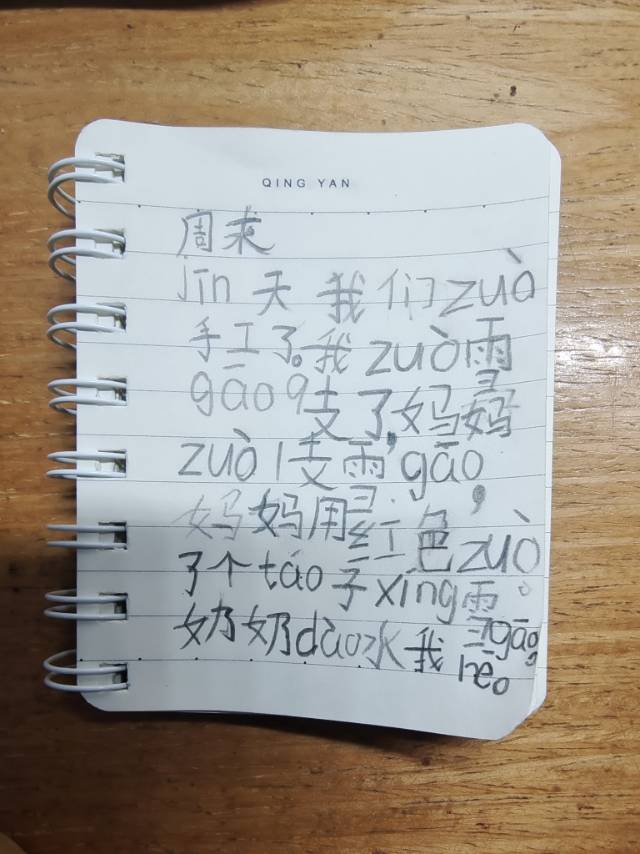 QING YAN
周末
jīn天我们zuò
手工了。我zuò雪
gāo9支了,妈妈
zuò1支雪gāo,
妈妈用红色zuò
了个táo子xíng雪gāo。
奶奶dào水我hē。